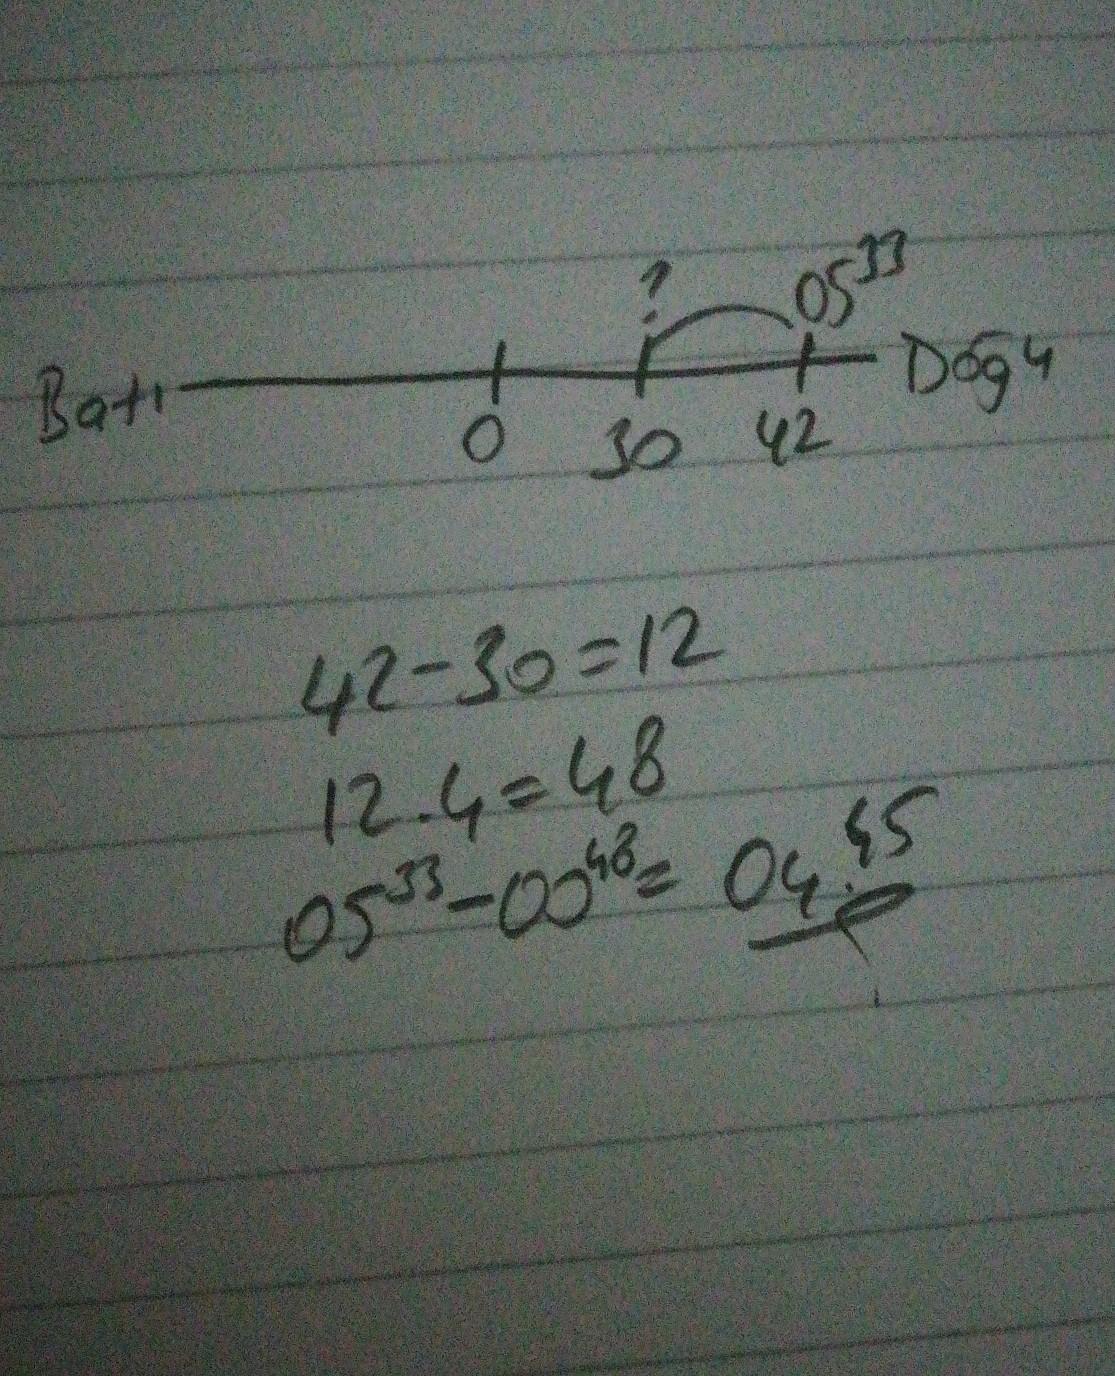 ?
05³³
Batı
Doğu
0 30 42
42-30=12
12.4=48
05³³-00⁴⁸= 04.⁴⁵